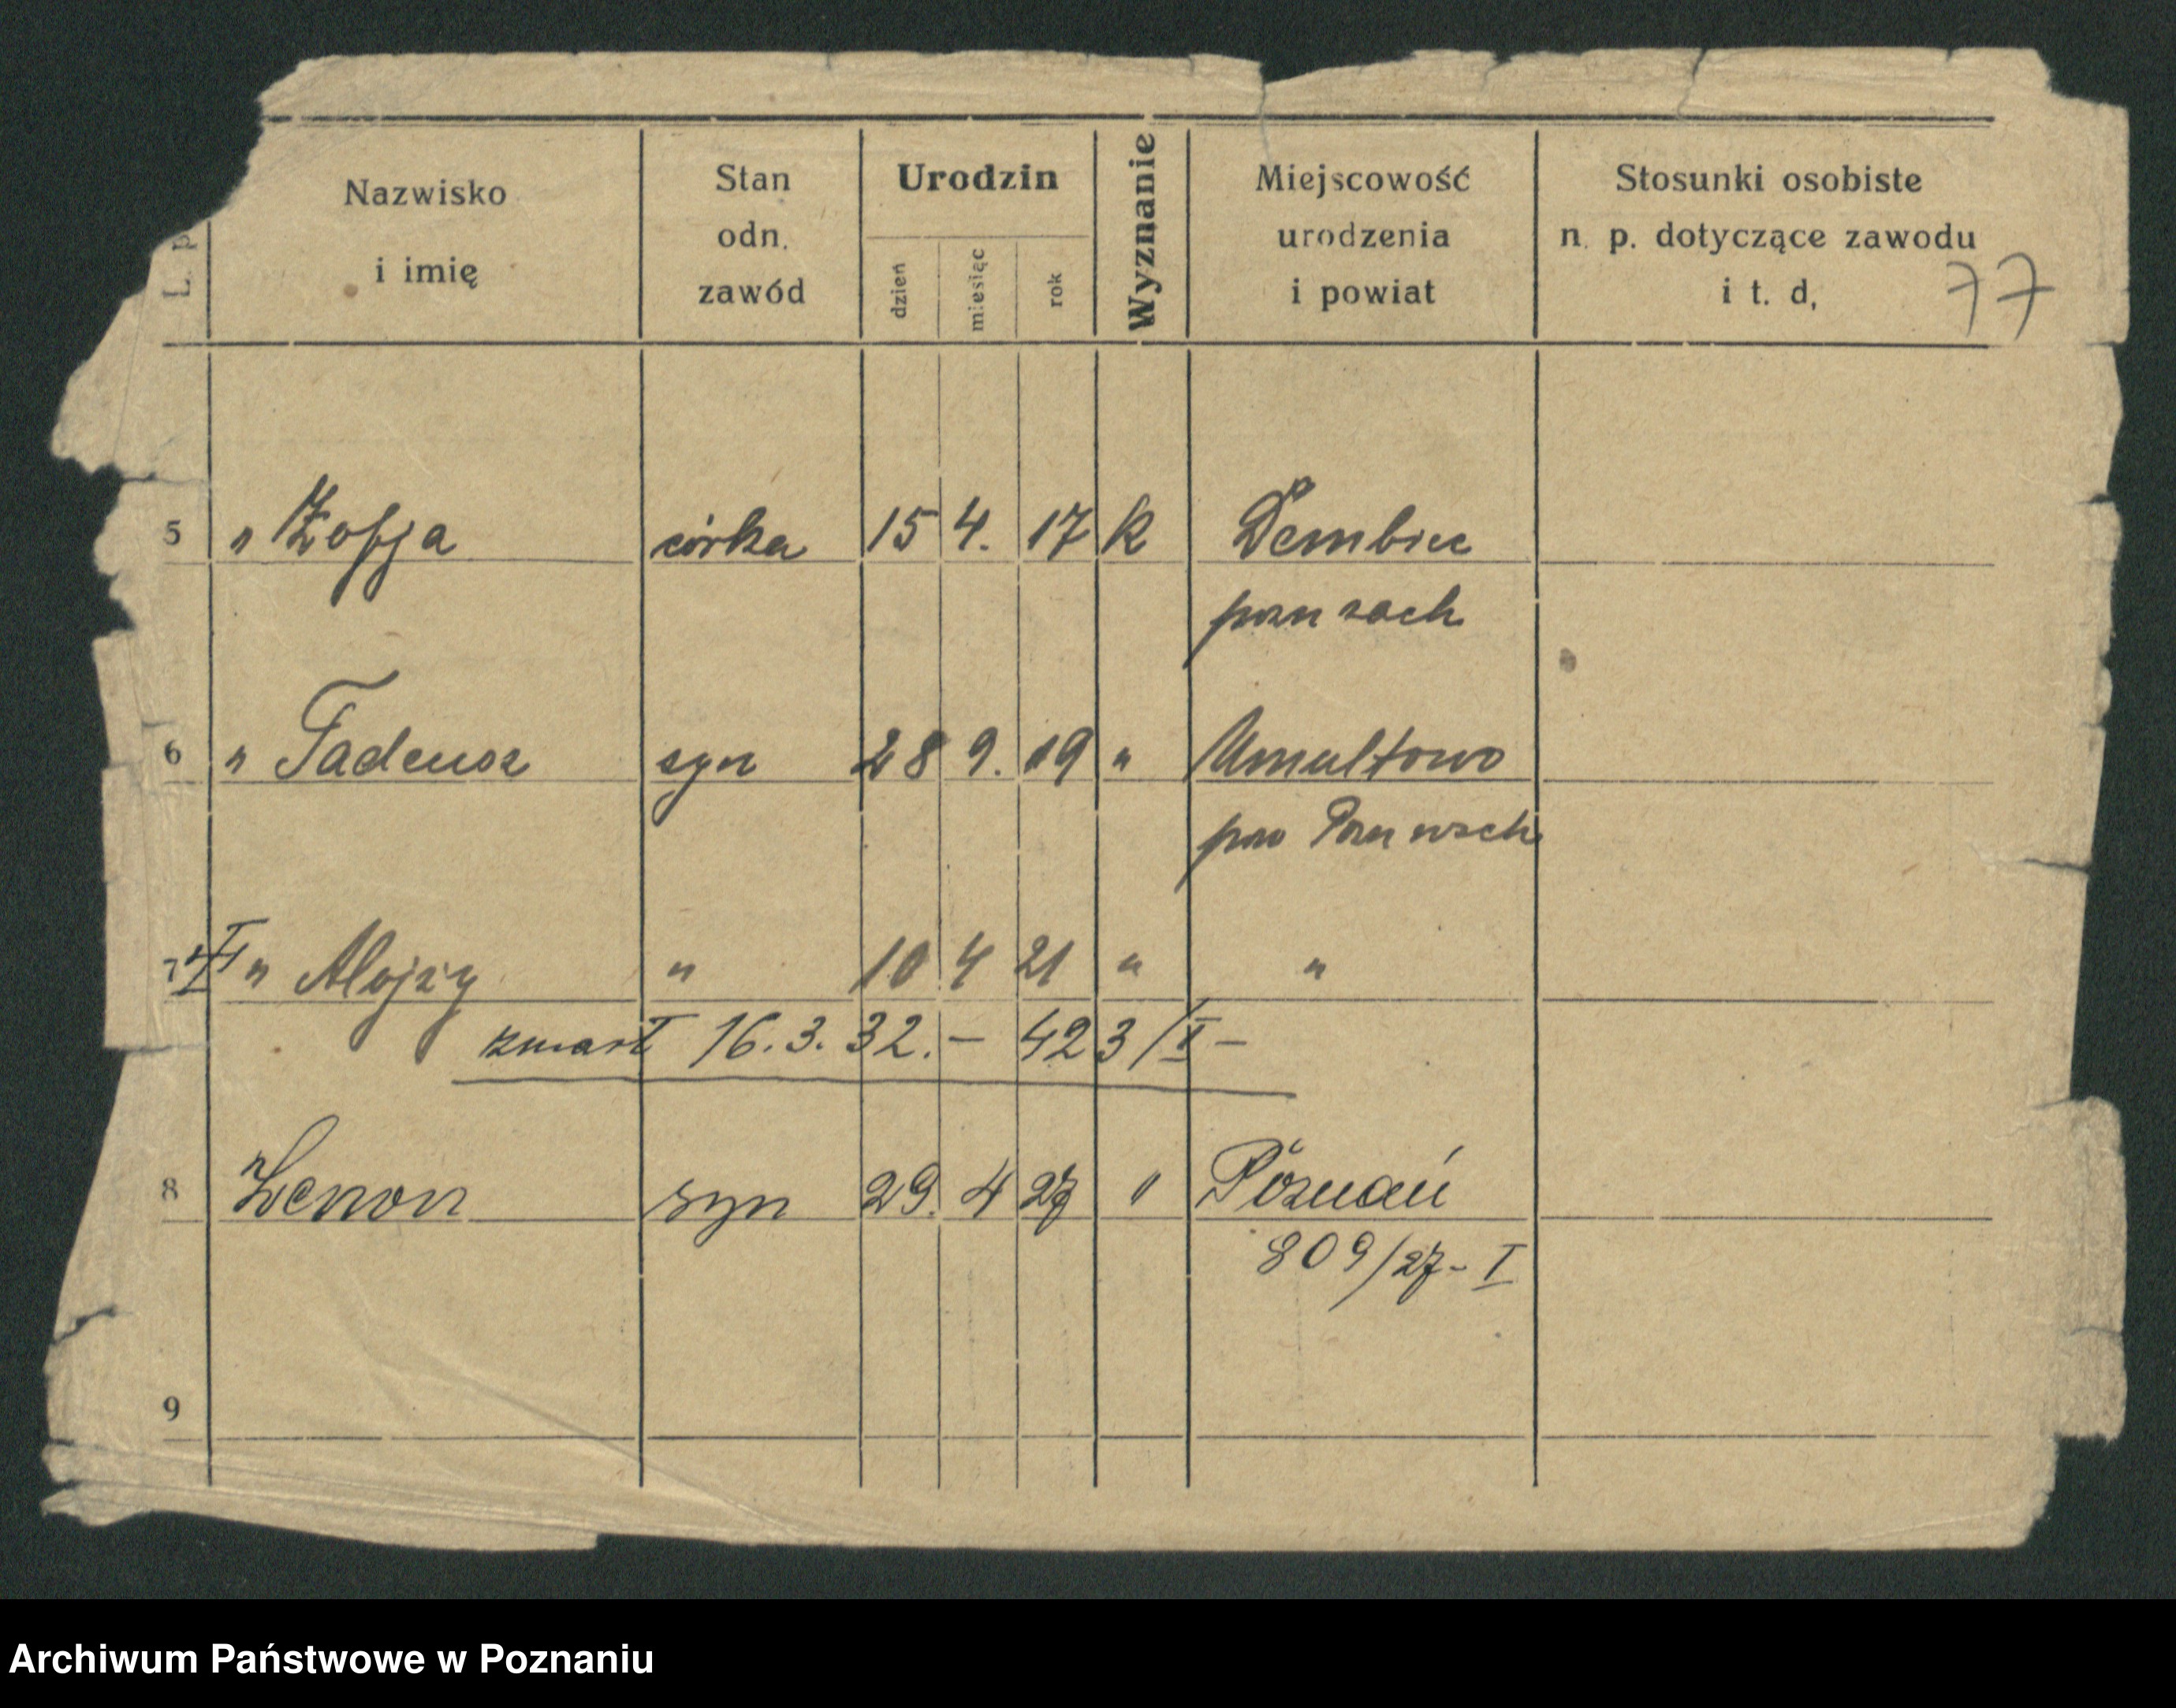 L. p
Nazwisko
i imię
Stan
odn.
zawód
Urodzin
dzień
miesiąc
rok
Wyznanie
Miejscowość
urodzenia
i powiat
Stosunki osobiste
n. p. dotyczące zawodu
i t. d.
77
5 " Zofja córka 15 4. 17 k Dembiec
pozn zach
6 " Tadeusz syn 28 9. 19 " Umultowo
pow Pozn wsch
7 " Alojzy " 10 4 21 " "
zmarł 16.3.32. – 423/I –
8 Zenon syn 29. 4 27 " Poznań
809/27 - I
9
Archiwum Państwowe w Poznaniu